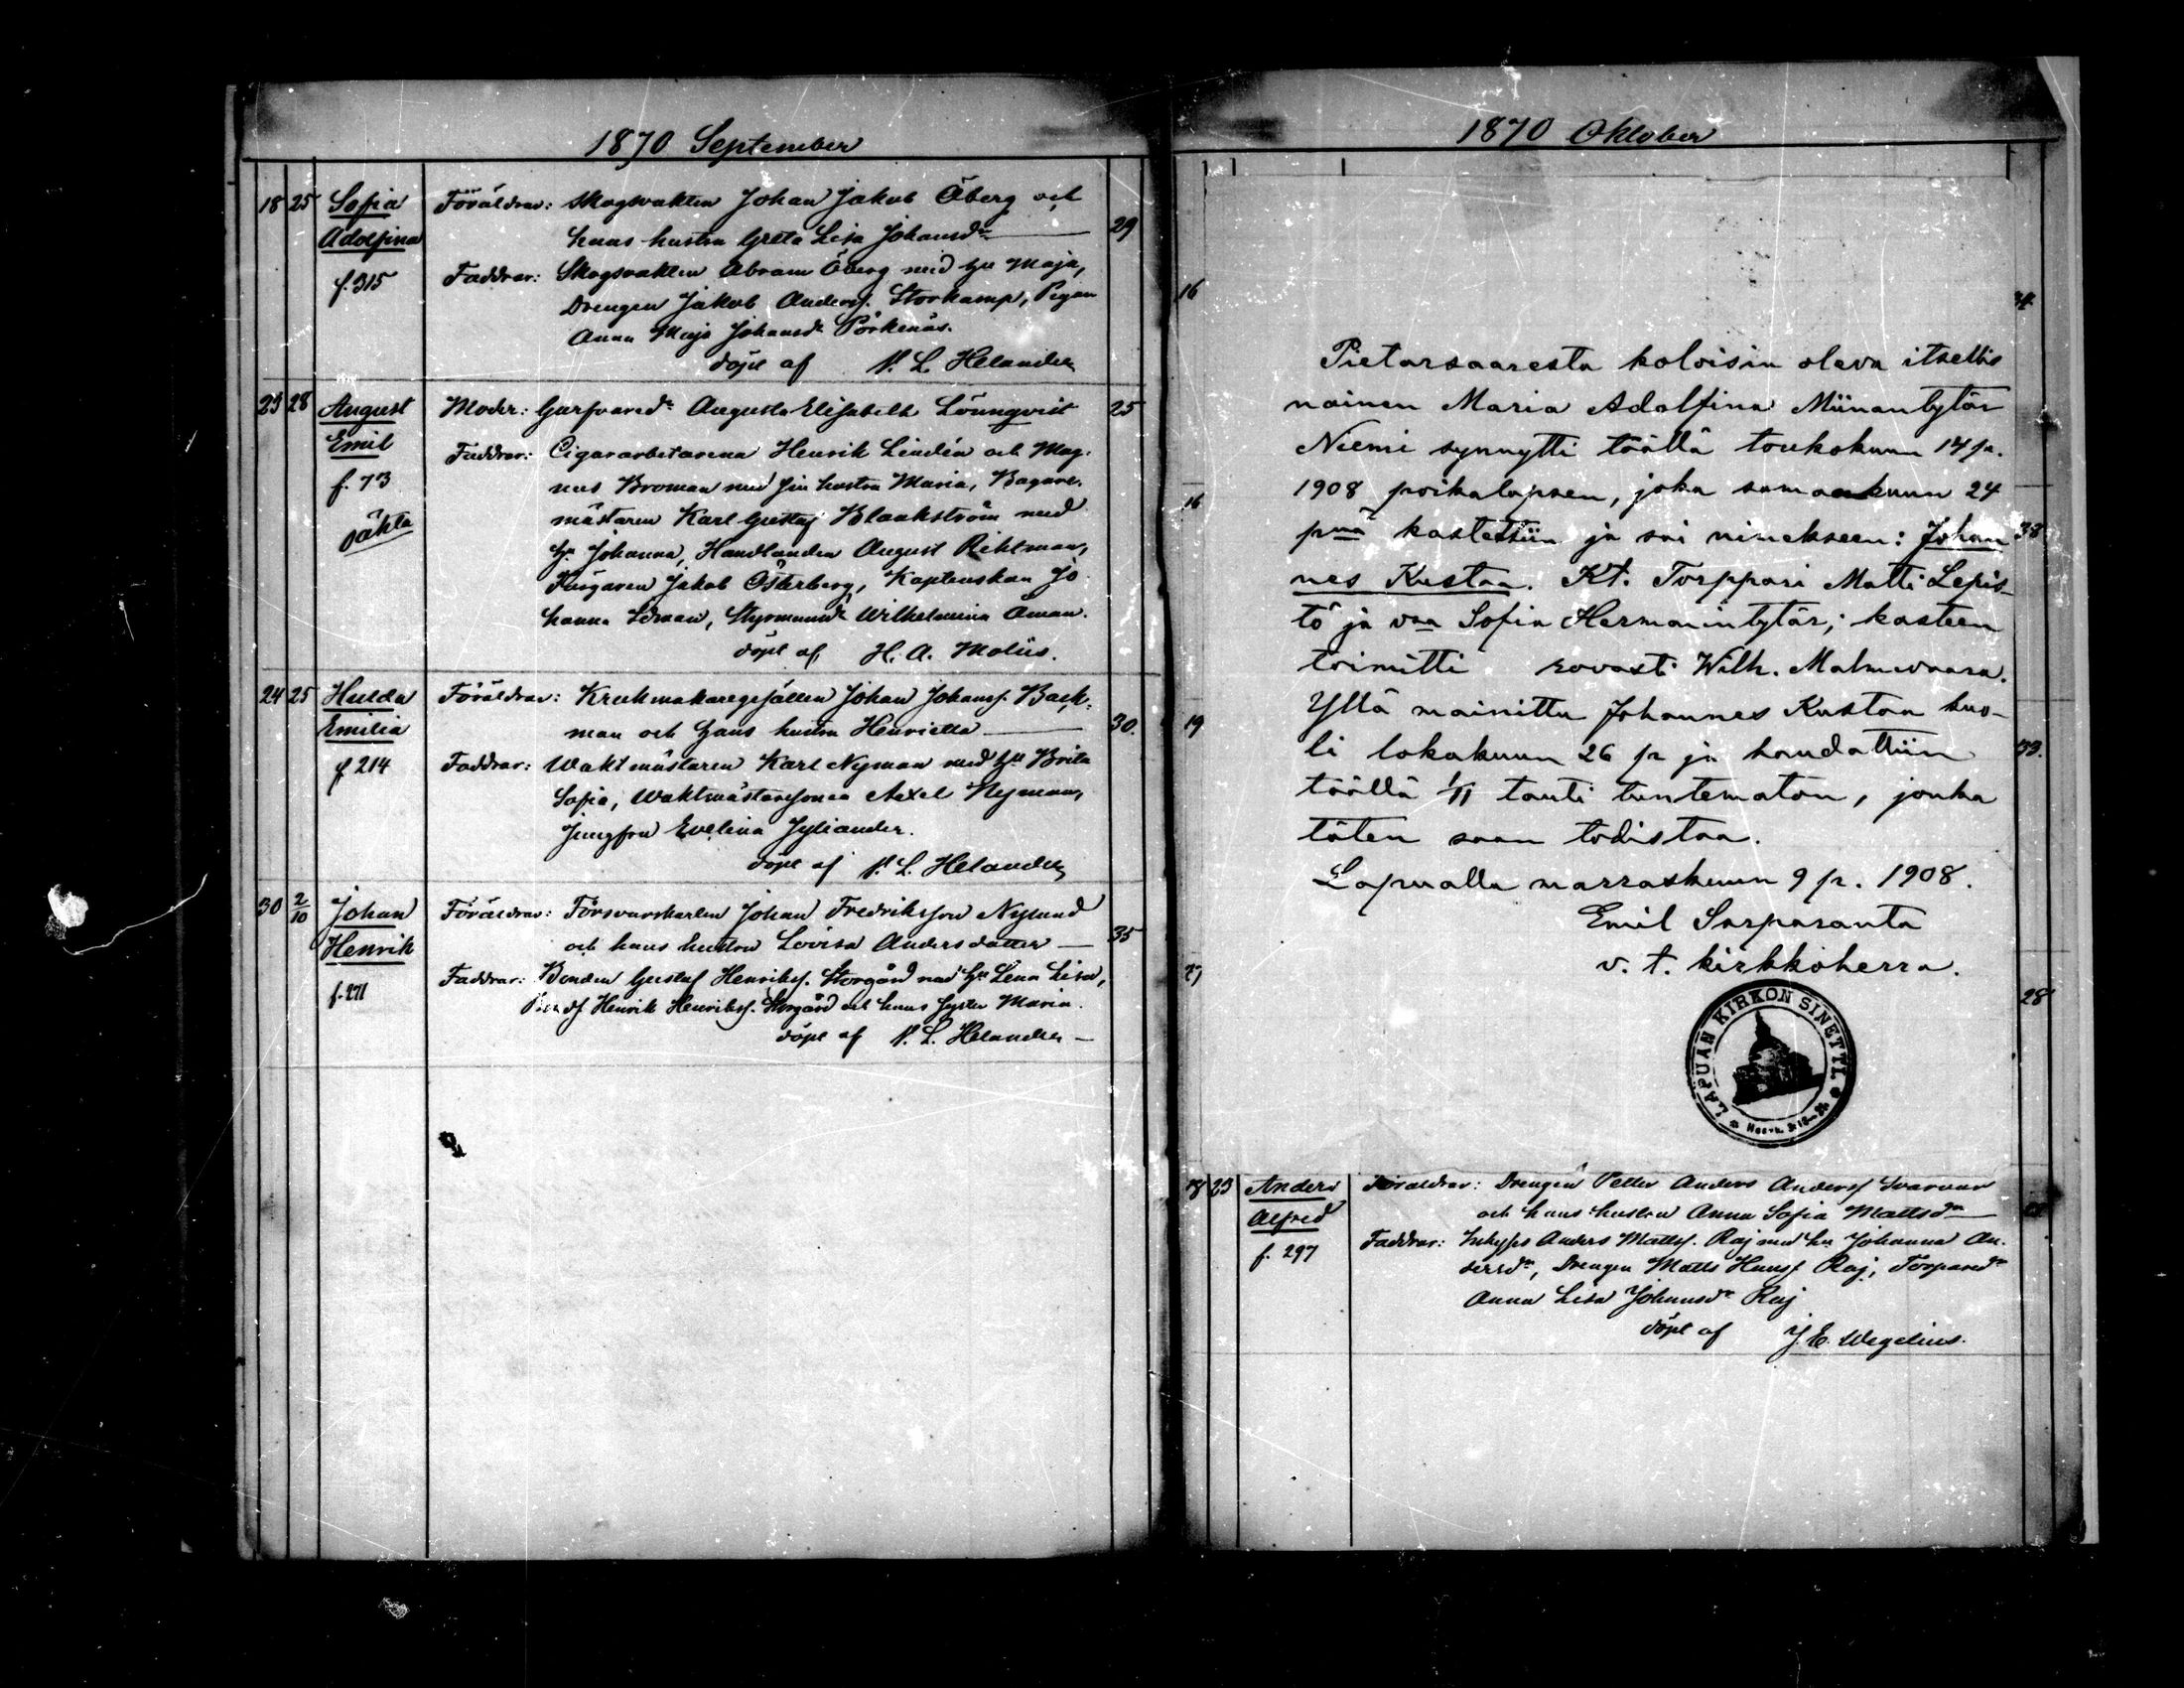 1870 September
18 25 Sofia Föräldrar: Skogvakten Johan Jakob Öberg och
Adolfina hans hustru Greta Lisa Johansdr 29
f. 315 Faddrar: Skogsvakten Abram Öberg med hu Maja,
Drengen Jakob Anderss. Storkamp, Pigan
Anna Maja Johansdr Pörkenäs.
döpt af P. L. Helander
23 28 August Moder: Garfvaredr Augusta Elisabeth Lönnqvist 25
Emil Faddrar: Cigararbetarena Henrik Lindén och Mag-
f. 73 nus Broman med sin hustru Maria, Bagare-
oäkta mästaren Karl Gustaf Blankström med
hu Johanna, Handlanden August Riktman,
Jakob Österberg, Kaptenskan Jo-
hanna Edman, Wilhelmina Öman.
döpt af H. A. Moliis.
24 25 Hulda Föräldrar: Krukmakaregesällen Johan Johanss. Back-
Emilia man och hans hustru Henrietta 30.
f 214 Faddrar: Waktmästaren Karl Nyman med hu Brita
Sofia, Waktmästaresonen Axel Nyman,
Jungfru Evelina Jyliander.
döpt af P. L. Helander
30 2/10 Johan Föräldrar: Försvarskarlen Johan Fredriksson Nylund
Henrik och hans hustru Lovisa Andersdotter 35
f. 271 Faddrar: Bonden Gustaf Henrikss. Storgård med hu Lena Lisa,
Henrik Henrikss. Storgård och hans syster Maria.
döpt af P. L. Helander
1870 Oktober
16 34
Pietarsaaresta koloisin oleva itsellis
nainen Maria Adolfina Miinantytär
Niemi synnytti täällä toukokuun 14 p.
1908 poikalapsen, joka samaankuun 24
16 pnä kastettiin ja sai nimekseen: Johan 38
nes Kustaa. Kt. Torppari Matti Lepis-
tö ja vaa Sofia Hermanintytär; kasteen
toimitti rovasti Wilh. Malmivaara.
19 Yllä mainittu Johannes Kustaa kuo-
li lokakuun 26 p. ja haudattiin 33.
täällä 1/11 tauti tuntematon, jonka
täten saan todistaa.
Lapualla marraskuun 9 p. 1908.
Emil Sarparanta
27 v. t. kirkkoherra.
28
LAPUAN KIRKON SINETTI.
18 23 Anders Föräldrar: Drengen Petter Anders Anderss Svarvar
Alfred och hans hustru Anna Sofia Mattsdr
f. 297 Faddrar: Inhyses Anders Mattss. Raj med hu Johanna An-
dersdr, Drengen Matts Hanss Raj, Torparedr
Anna Lisa Johansdr Raj
döpt af J. E. Wegelius.